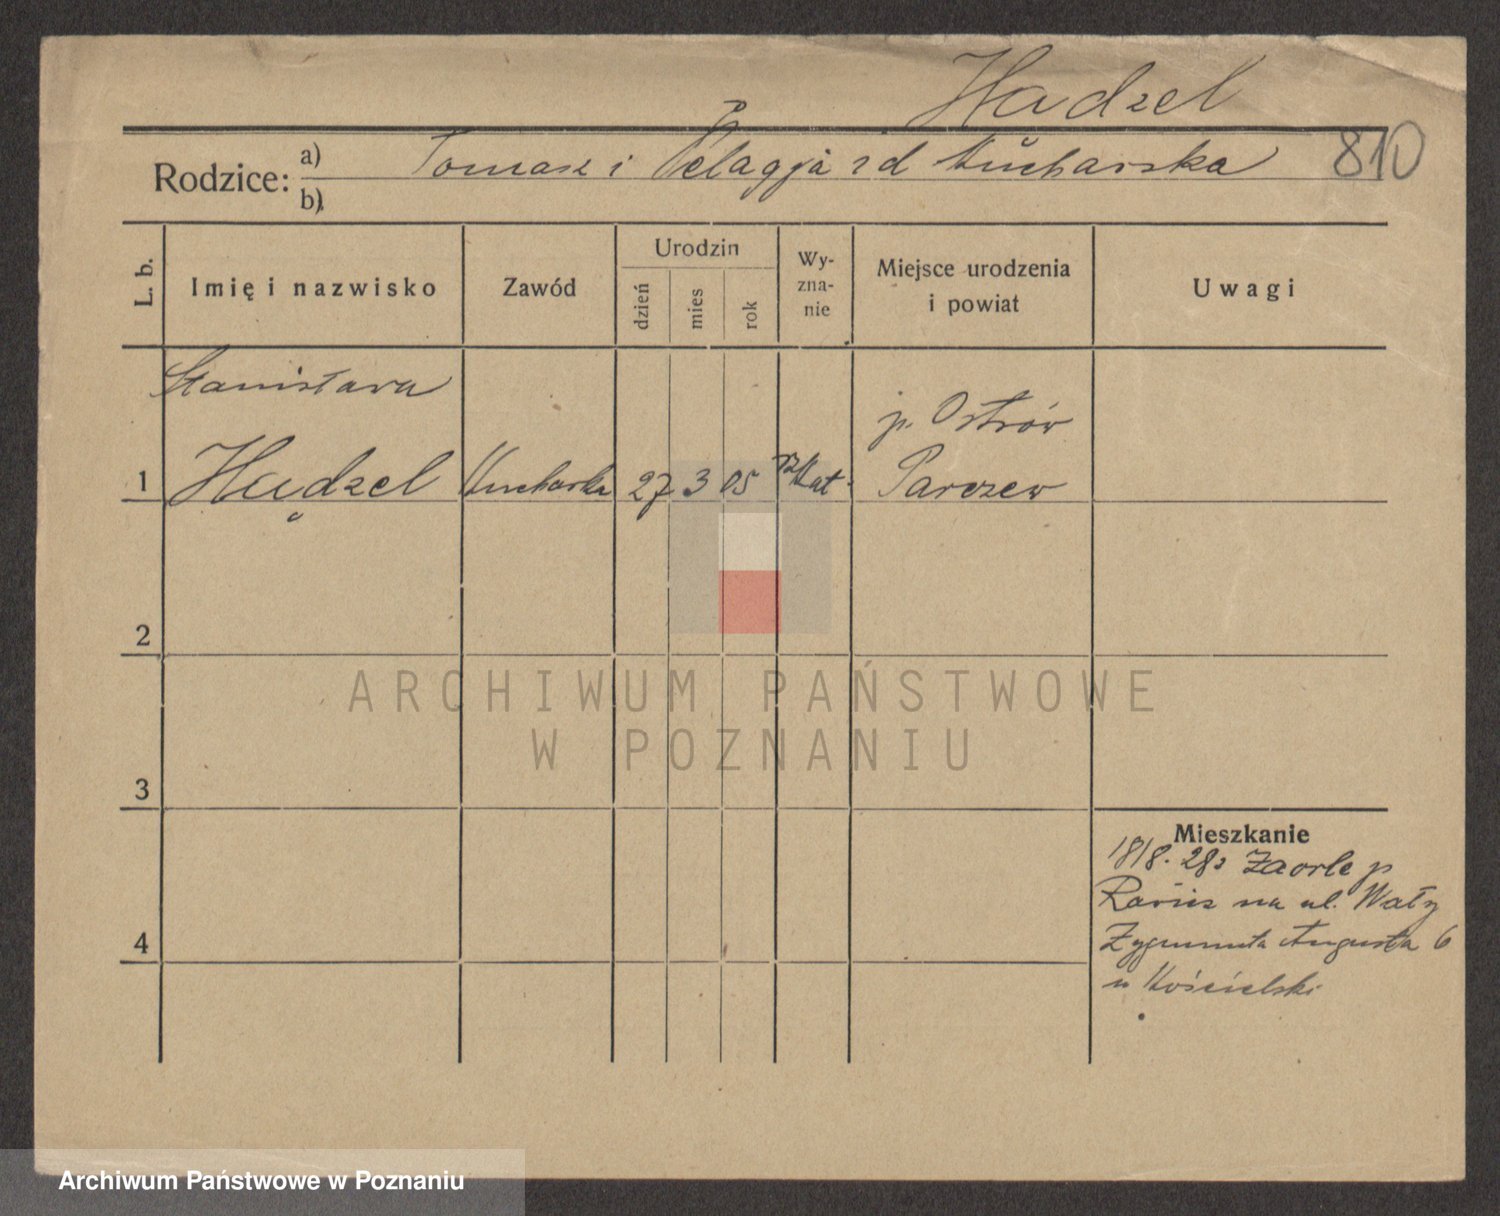 Hadzel
Rodzice: a) Tomasz i Pelagja zd Kucharska 810
b)
L. b. Imię i nazwisko Zawód Urodzin dzień mies rok Wyznanie Miejsce urodzenia i powiat Uwagi
Stanisława
p. Ostrów
1 Hądzel Kucharka 27 3 05 rz Kat. Parczew
2
ARCHIWUM PAŃSTWOWE
W POZNANIU
3
Mieszkanie
Zaorle p
4 na ul. Wały
Zygmunta Augusta 6
u Kościelski
Archiwum Państwowe w Poznaniu